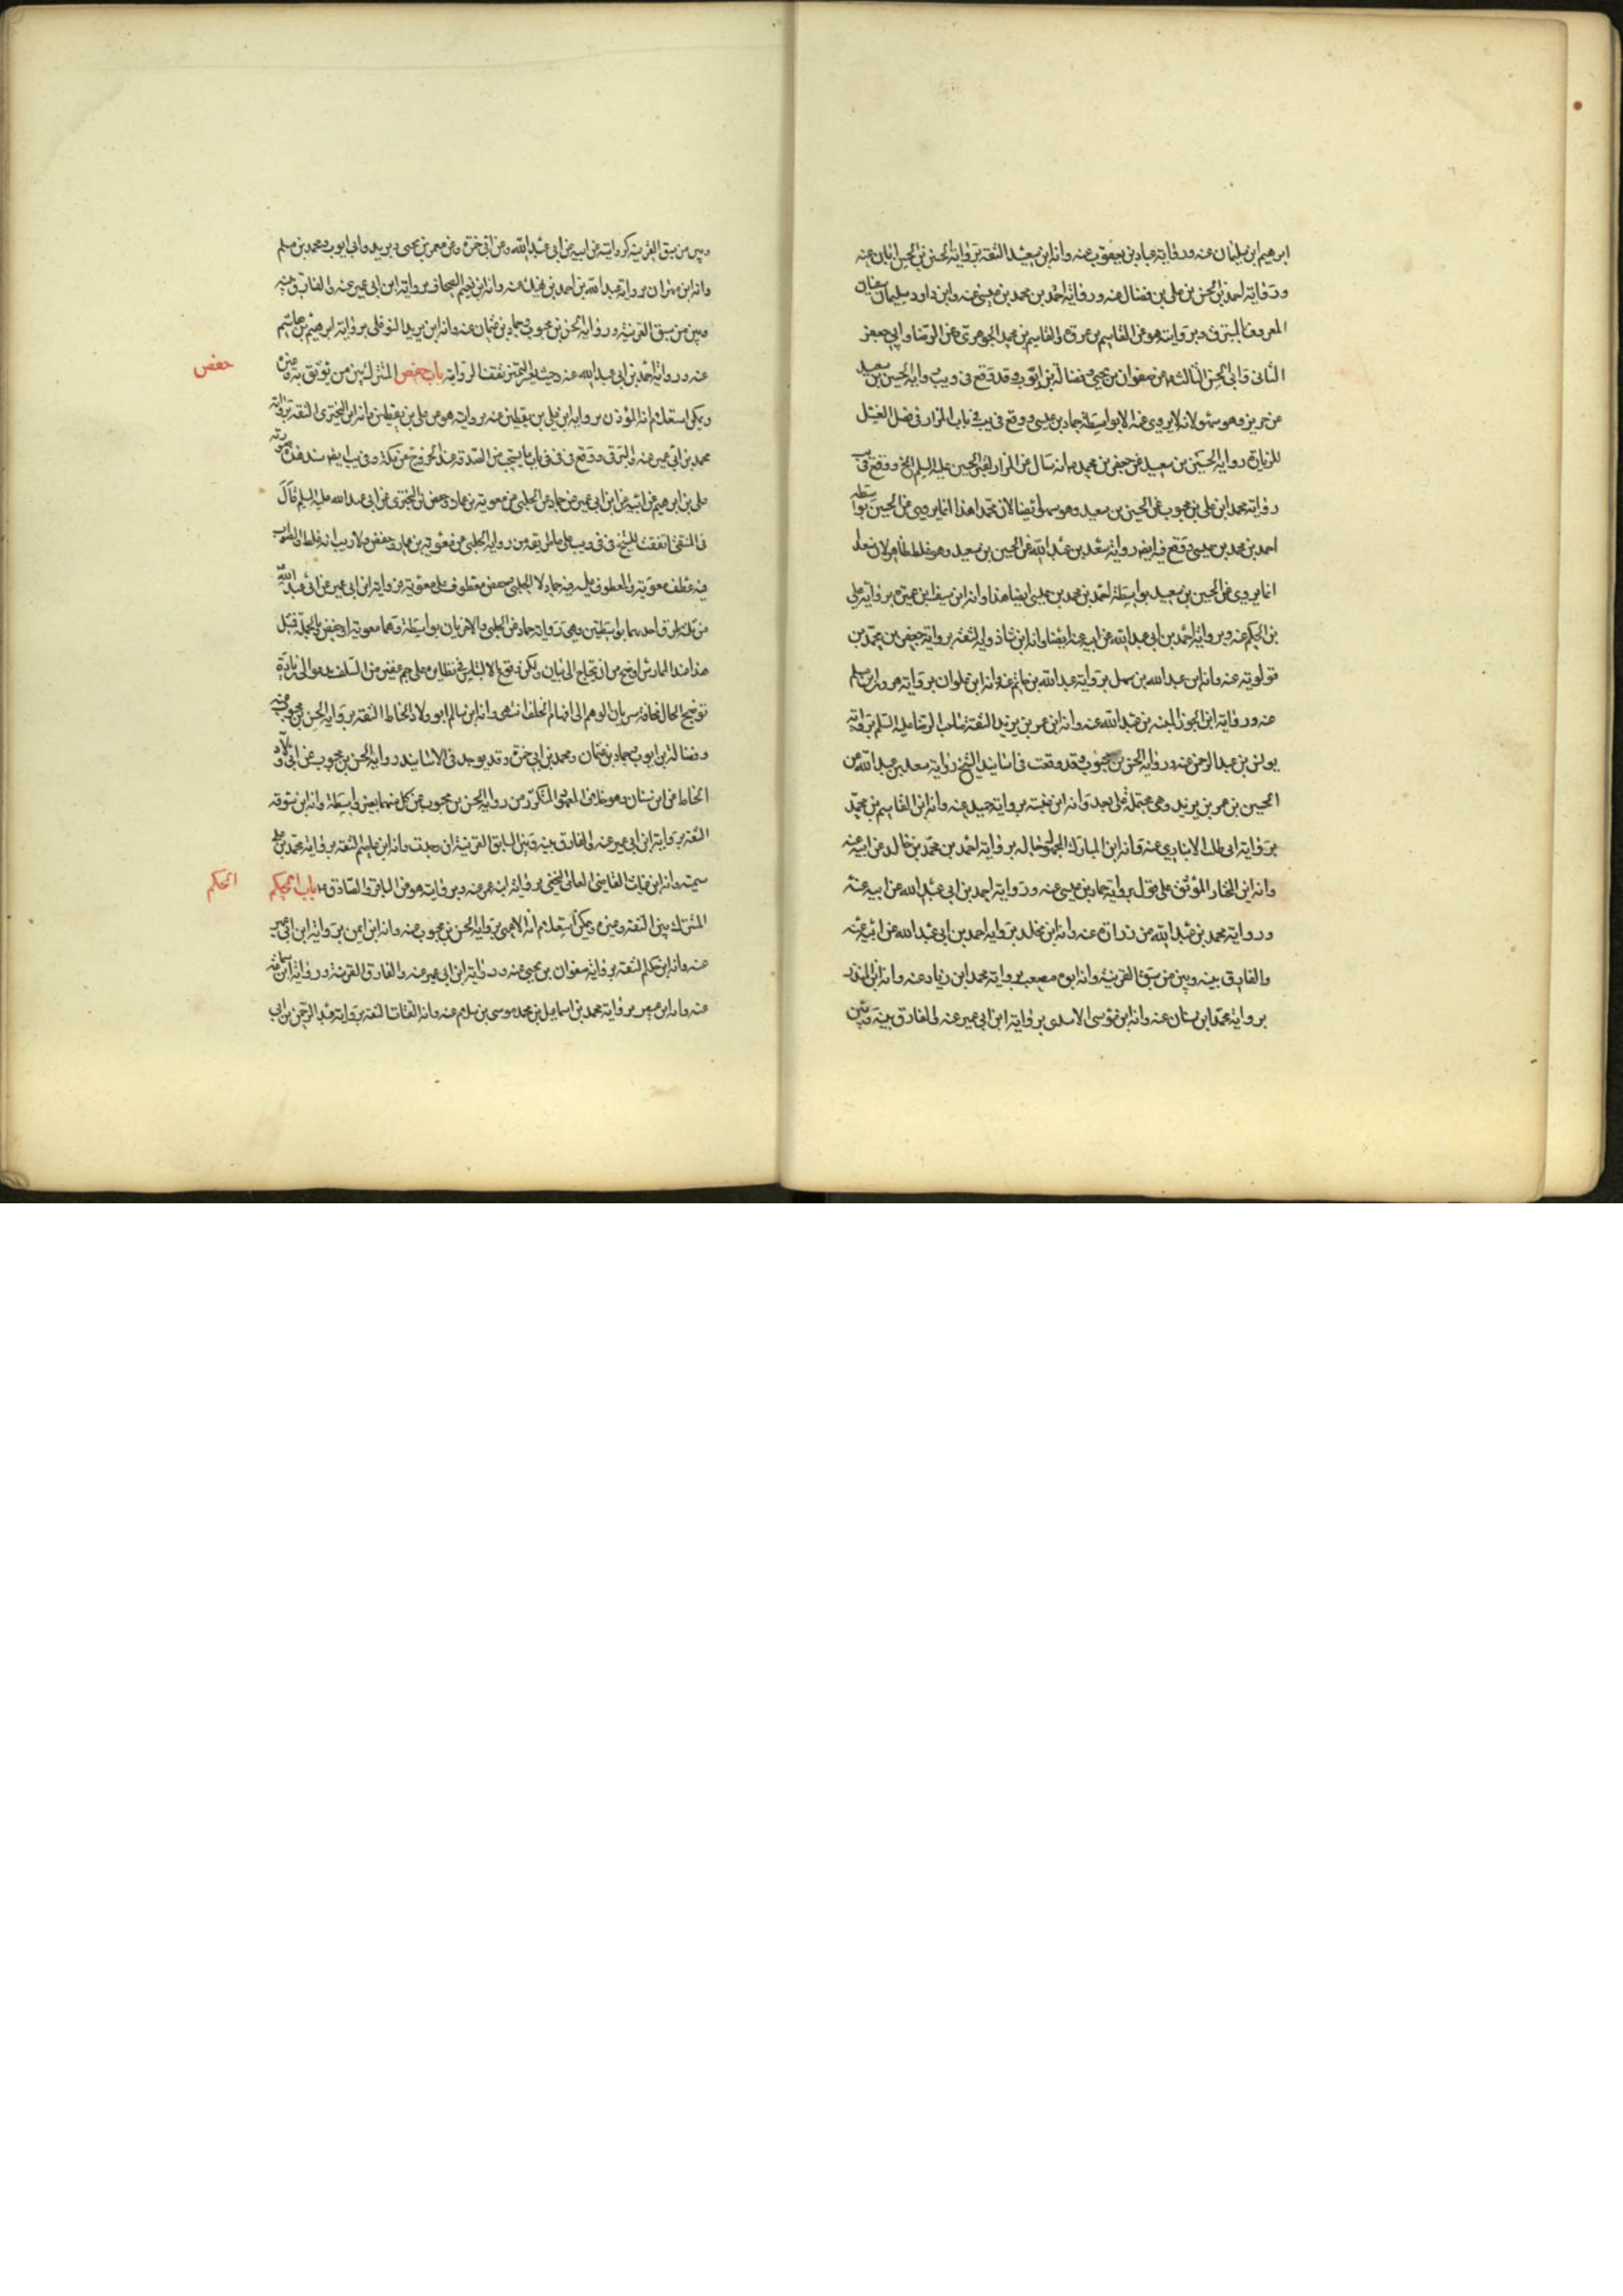 ابرهيم بن سليمان عنه ورواية عباد بن يعقوب عنه وانه ابن سعيد الثقة برواية الحسن بن الحسين ابان عنه
ورواية احمد بن الحسن بن علي بن فضال عنه ورواية احمد بن محمد بن عيسى عنه وابن داود سليمان سفيان
المعروف بالمسترق وبروايته هو عن القاسم بن عروة والقاسم بن محمد الجوهري وعن الرضا وابي جعفر
الثاني وابي الحسن الثالث وعن صفوان بن يحيى وفضالة بن ايوب وقد وقع في ويب رواية الحسين بن سعيد
عن حريز وهو سهو لانه لا يروي عنه الا بواسطة حماد بن عيسى ووقع في يب في باب المزار في فضل الغسل
للزيارة رواية الحسين بن سعيد عن جعفر بن محمد انه سال عن الزاير لقبر الحسين عليه السلم الخ ووقع في يب
رواية محمد ابن علي بن محبوب عن الحسين بن سعيد وهو سهو ايضا لان محمدا هذا انما يروي عن الحسين بواسطة
احمد بن محمد بن عيسى ووقع فيه ايضا رواية سعد بن عبد الله عن الحسين بن سعيد وهو غلط ظاهر لان سعدا
انما يروي عن الحسين بن سعيد بواسطة احمد بن محمد بن عيسى ايضا هذا وانه ابن سيف ابن عميرة برواية علي
بن الحكم عنه وبرواية احمد بن ابي عبد الله عن ابيه عنه ايضا وانه ابن شاذويه الثقة برواية جعفر بن محمد بن
قولويه عنه وانه ابن عبد الله بن سهل برواية عبد الله بن عنه وانه ابن علوان برواية هرون بن مسلم
عنه ورواية ابن الجوزا المنبه بن عبد الله عنه وانه ابن عمر بن يزيد الثقة صاحب الرضا عليه السلم برواية
يونس بن عبد الرحمن عنه ورواية الحسن بن محبوب وقد وقعت في اسانيد الشيخ رواية سعد بن عبد الله عن
الحسين بن عمر بن يزيد وهي محتملة على بعد وانه ابن برواية حميد عنه وانه ابن القاسم بن محمد
برواية ابي طالب الانباري عنه وانه ابن المبارك المجهول حاله برواية احمد بن محمد بن خالد عن ابيه عنه
وانه ابن المختار الموثق على قول برواية حماد بن عيسى عنه ورواية احمد بن ابي عبد الله عن ابيه عنه
ورواية محمد بن عبد الله بن زرارة عنه وانه ابن مخلد برواية احمد بن ابي عبد الله عن ابيه عنه
والفارق بينه وبين من سبق القرينة وانه ابو مصعب برواية محمد ابن زياد عنه وانه ابن المنذر
برواية محمد ابن سنان عنه وانه ابن موسى الاسدي برواية ابن ابي عمير عنه والفارق بينه وبين
وبين من سبق القرينة كروايته عن ابيه عن ابي عبد الله وعن ابي حمزة وعن معمر بن يحيى وبريد وابي ايوب ومحمد بن مسلم
وانه ابن مهران برواية عبد الله بن احمد بن نهيك عنه وانه ابن نعيم الصحاف برواية ابن ابي عمير عنه والفارق بينه
وبين من سبق القرينة ورواية الحسن بن محبوب وحماد بن عثمان عنه وانه ابن يزيد النوفلي برواية ابرهيم بن هاشم
عنه ورواية احمد بن ابي عبد الله عنه وحيث لا تميز تقف الرواية باب حفص المشترك بين من يوثق به وغيره
حفص
ويمكن استعلام انه المؤذن برواية ابن علي بن يقطين عنه بروايته هو عن علي بن يقطين وانه ابن البختري الثقة برواية
محمد بن ابي عمير عنه والبرقي ووقع في في باب ما يستحب من الصدقة عند الخروج من مكة وفي يب ايضا سند هذه صورته
علي بن ابرهيم عن ابيه عن ابن ابي عمير عن حماد عن الحلبي عن معوية بن عمار وحفص بن البختري عن ابي عبد الله عليه السلم قال
في المنتقى اتفقت للشيخ في في ويب على ما اورده من رواية الحلبي عن معوية بن عمار وحفص ولا ريب انه غلط والصواب
فيه عطف معوية والمعطوف عليه فيه حماد لا الحلبي وحفص معطوف على معوية من رواية ابن ابي عمير عن ابي عبد الله
من ثلثة طرق احدها بواسطتين وهي رواية حماد عن الحلبي والاخريان بواسطة وهما معوية وحفص وبالجملة فمثل
هذا عند الممارس اوضح من ان يحتاج الى بيان ولكن وقوع الالتباس في نظايره على جم غفير من السلف يدعو الى زيادة
توضيح الحال مخافة سريان الوهم الى افهام الخلف انتهى وانه ابن سالم ابو ولاد الحناط الثقة برواية الحسن بن محبوب عنه
وفضالة بن ايوب وحماد بن عثمان ومحمد بن ابي حمزة وقد يوجد في الاسانيد رواية الحسن بن محبوب عن ابي ولاد
الحناط عن ابن سنان وهو خلاف المعهود المتكرر من رواية الحسن بن محبوب عن كل منهما بغير واسطة وانه ابن سوقة
الثقة برواية ابن ابي عمير عنه والفارق بينه وبين السابق القرينة ان وجدت وانه ابن عاصم الثقة برواية محمد بن علي
عنه وانه ابن غياث القاضي العامي النخعي برواية ابنه عمر عنه وبروايته هو عن الباقر والصادق ع باب الحكم
الحكم
المشترك بين الثقة وغيره ويمكن استعلام انه الاعمى برواية الحسن بن محبوب عنه وانه ابن ايمن برواية ابن ابي عمير
عنه وانه ابن حكيم الثقة برواية صفوان بن يحيى عنه ورواية ابن ابي عمير عنه والفارق القرينة ورواية ابن سماعة
عنه وانه ابن برواية محمد بن اسماعيل بن محمد موسى بن سلام عنه وانه القتات الثقة برواية عبد الرحمن بن ابي